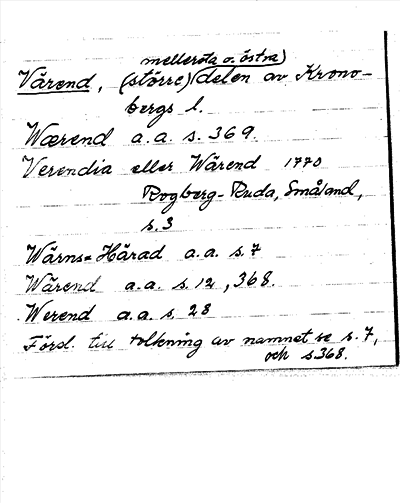 mellersta o. östra)
Värend, (större) (delen av Krono-
bergs l.
Wærend a.a. s. 369.
Verendia eller Wärend 1770
Rogberg-Ruda, Småland,
s. 3
Wärns=Härad a.a. s. 7
Wärend a.a. s. 12, 368.
Werend a.a. s. 28
Försl. till tolkning av namnet se s. 7,
och s. 368.